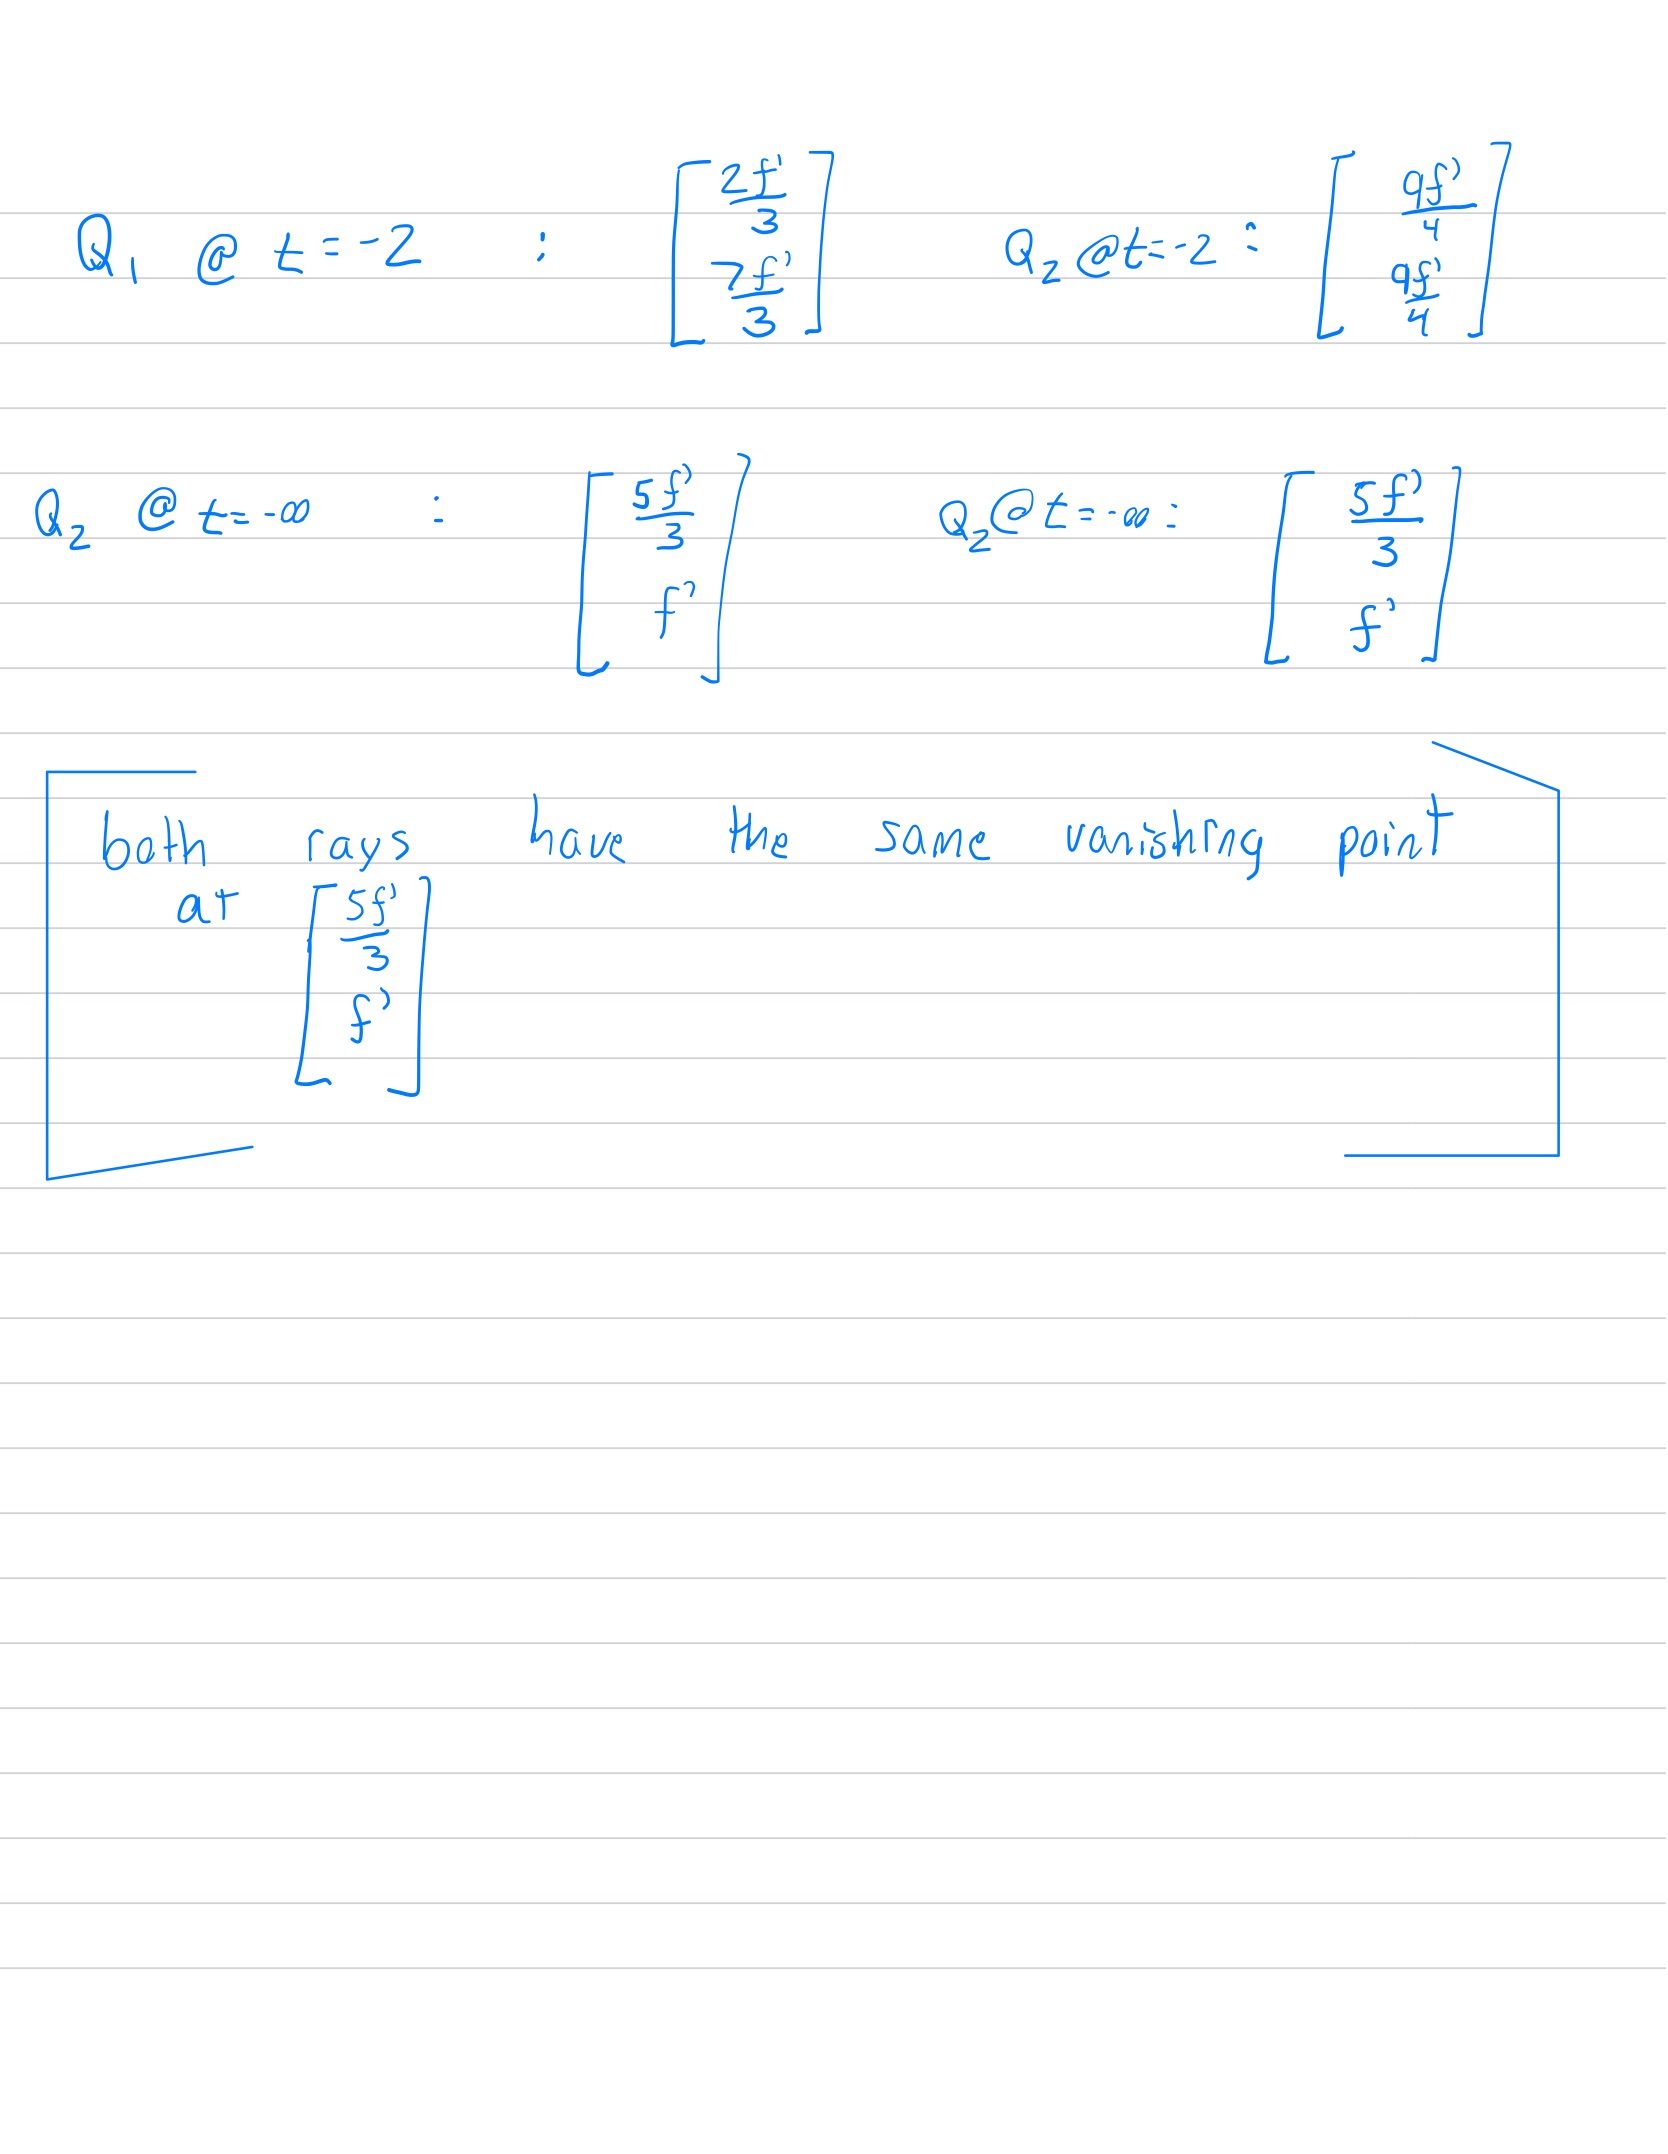 Q₁ @ t = -2 : [ 2f'/3 7f'/3 ] Q₂ @ t = -2 : [ 9f'/4 9f'/4 ]
Q₂ @ t = -∞ : [ 5f'/3 f' ] Q₂ @ t = -∞ : [ 5f'/3 f' ]
both rays have the same vanishing point
at [ 5f'/3 f' ]